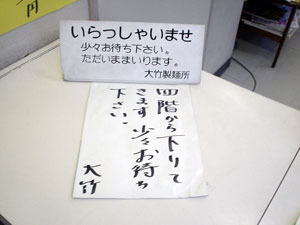 円
いらっしゃいませ
少々お待ち下さい。
ただいままいります。
大竹製麺所
四階から下りて
きます少々お待ち
下さい。
大竹